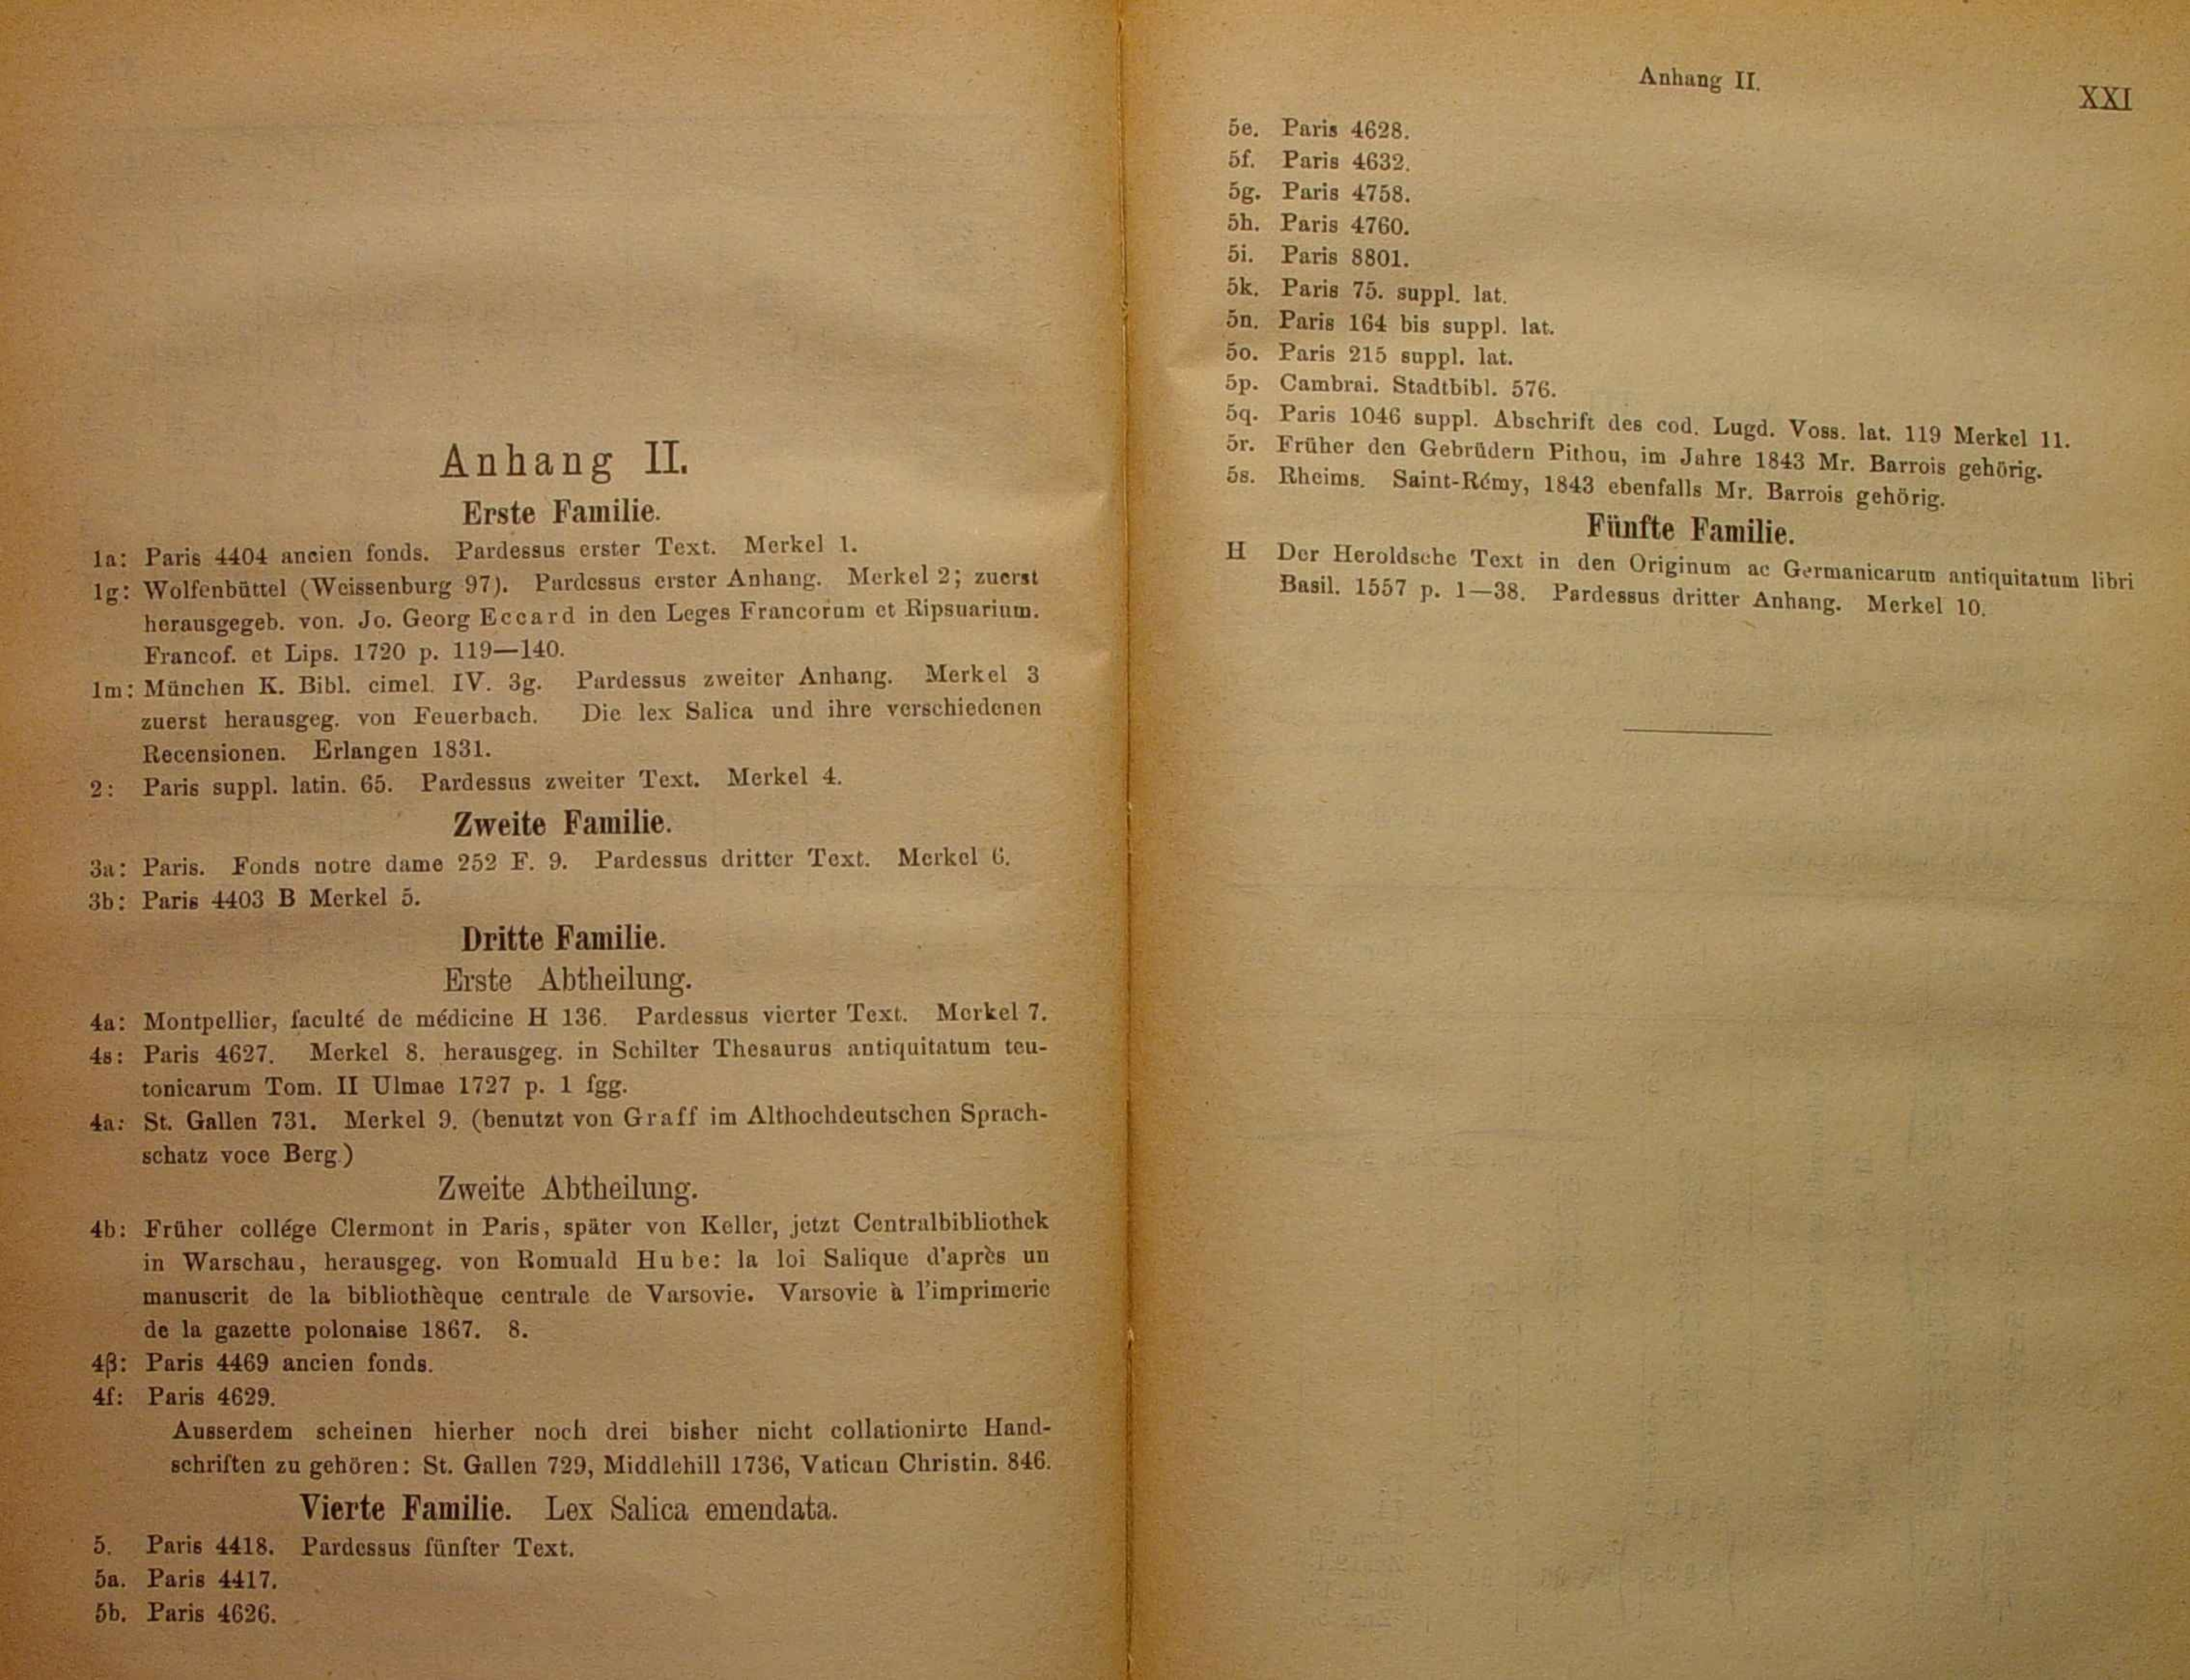 Anhang II.
Erste Familie.
1a: Paris 4404 ancien fonds. Pardessus erster Text. Merkel 1.
1g: Wolfenbüttel (Weissenburg 97). Pardessus erster Anhang. Merkel 2; zuerst
herausgegeb. von. Jo. Georg Eccard in den Leges Francorum et Ripsuarium.
Francof. et Lips. 1720 p. 119—140.
1m: München K. Bibl. cimel. IV. 3g. Pardessus zweiter Anhang. Merkel 3
zuerst herausgeg. von Feuerbach. Die lex Salica und ihre verschiedenen
Recensionen. Erlangen 1831.
2: Paris suppl. latin. 65. Pardessus zweiter Text. Merkel 4.
Zweite Familie.
3a: Paris. Fonds notre dame 252 F. 9. Pardessus dritter Text. Merkel 6.
3b: Paris 4403 B Merkel 5.
Dritte Familie.
Erste Abtheilung.
4a: Montpellier, faculté de médicine H 136. Pardessus vierter Text. Merkel 7.
4s: Paris 4627. Merkel 8. herausgeg. in Schilter Thesaurus antiquitatum teu-
tonicarum Tom. II Ulmae 1727 p. 1 fgg.
4a: St. Gallen 731. Merkel 9. (benutzt von Graff im Althochdeutschen Sprach-
schatz voce Berg.)
Zweite Abtheilung.
4b: Früher collége Clermont in Paris, später von Keller, jetzt Centralbibliothek
in Warschau, herausgeg. von Romuald Hube: la loi Salique d'après un
manuscrit de la bibliothèque centrale de Varsovie. Varsovie à l'imprimerie
de la gazette polonaise 1867. 8.
4β: Paris 4469 ancien fonds.
4f: Paris 4629.
Ausserdem scheinen hierher noch drei bisher nicht collationirte Hand-
schriften zu gehören: St. Gallen 729, Middlehill 1736, Vatican Christin. 846.
Vierte Familie. Lex Salica emendata.
5. Paris 4418. Pardessus fünfter Text.
5a. Paris 4417.
5b. Paris 4626.
Anhang II.
XXI
5e. Paris 4628.
5f. Paris 4632.
5g. Paris 4758.
5h. Paris 4760.
5i. Paris 8801.
5k. Paris 75. suppl. lat.
5n. Paris 164 bis suppl. lat.
5o. Paris 215 suppl. lat.
5p. Cambrai. Stadtbibl. 576.
5q. Paris 1046 suppl. Abschrift des cod. Lugd. Voss. lat. 119 Merkel 11.
5r. Früher den Gebrüdern Pithou, im Jahre 1843 Mr. Barrois gehörig.
5s. Rheims. Saint-Rémy, 1843 ebenfalls Mr. Barrois gehörig.
Fünfte Familie.
H Der Heroldsche Text in den Originum ac Germanicarum antiquitatum libri
Basil. 1557 p. 1—38. Pardessus dritter Anhang. Merkel 10.